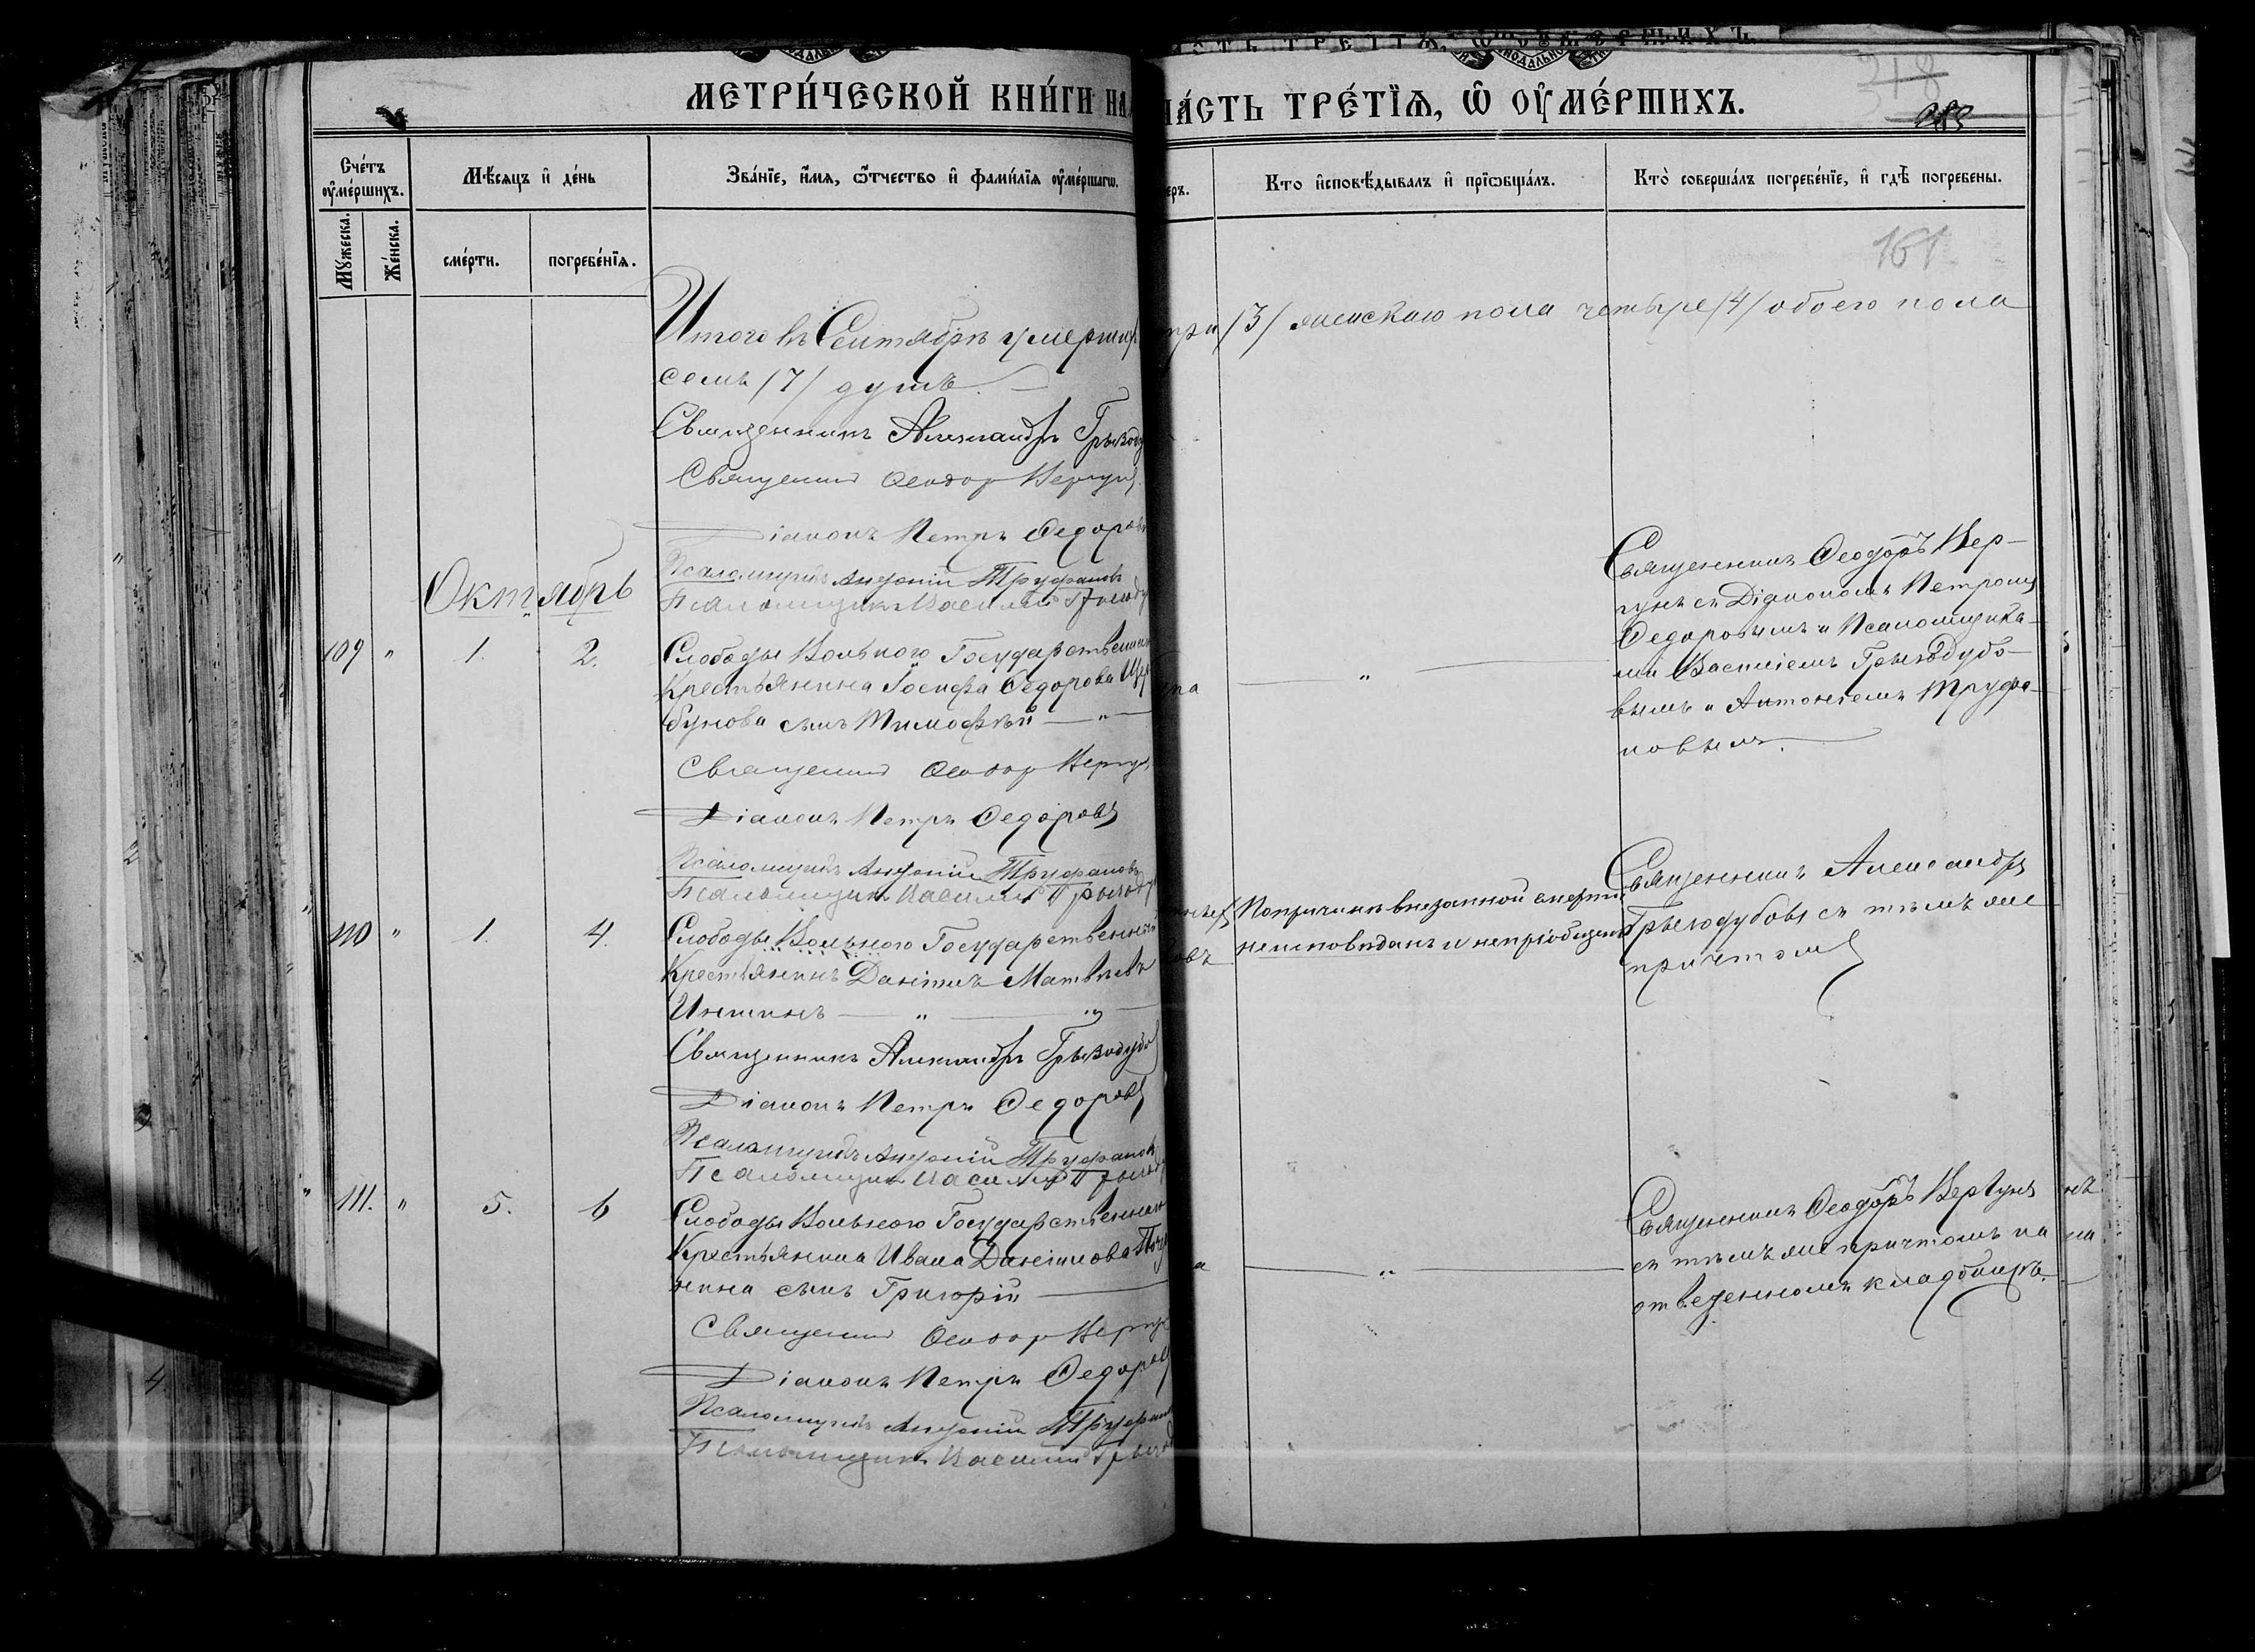 МЕТРИ́ЧЕСКОЙ КНИ́ГИ НА
ЧА́СТЬ ТРЕ́ТЇѦ, Ѽ ОУ҆МЕ́РШИХЪ.
Сче́тъ оу҆ме́ршихъ.
Мѣ́сяцъ и҆ де́нь
Зва́нїе, и҆́мя, ѻ҆́тчество и҆ фами́лїя оу҆ме́ршагѡ.
Кто и҆сповѣ́дывалъ и҆ прїѡбща́лъ.
Кто̀ соверша́лъ погребе́нїе, и҆ гдѣ̀ погребены.
Му́жеска.
Же́нска.
сме́рти.
погребе́нїя.
161
Итого въ Сентябрѣ умерших
три /3/ женскаго пола четыре /4/ обоего пола
семь /7/ душъ.
Священникъ Александръ Грызоду
Священник Феодор Вергун
Діаконъ Петръ Федоровъ
Псаломщикъ Антоній Труфановъ
Псаломщикъ Василий Грызоду
Октябрь
109 " 1. 2.
Слободы Вольного Государственнаго
Крестьянина Іосифа Федорова
бунова сынъ Тимофѣй — " —
— " —
Священникъ Феодоръ Вер-
гунъ съ Діакономъ Петромъ
Федоровымъ и Псаломщика-
ми Василіемъ Грызодубо-
вымъ и Антоніемъ Труфа-
новымъ.
Священник Феодор Вергун
Діаконъ Петръ Федоровъ
Псаломщикъ Антоній Труфановъ
Псаломщикъ Василий Грызоду
110 " 1. 4.
Слободы Вольного Государственный
Крестьянинъ Даніилъ Матвѣевъ
— " — " —
По причинѣ внезапной смерти
неисповѣданъ и непріобщенъ
Священникъ Александръ
Грызодубовъ съ тѣмъ же
причтомъ
Священникъ Александръ Грызодубо
Діаконъ Петръ Федоровъ
Псаломщикъ Антоній Труфановъ
Псаломщикъ Василий Грызоду
111. " 5. 6
Слободы Вольного Государственнаго
Крестьянина Ивана Даніилова
нина сынъ Григорій —
— " —
Священникъ Феодоръ Вергунъ
съ тѣмъ же причтомъ на
отведенномъ кладбищѣ.
Священник Феодор Вергун
Діаконъ Петръ Федоровъ
Псаломщикъ Антоній Труфанов
Псаломщикъ Василий Грызод